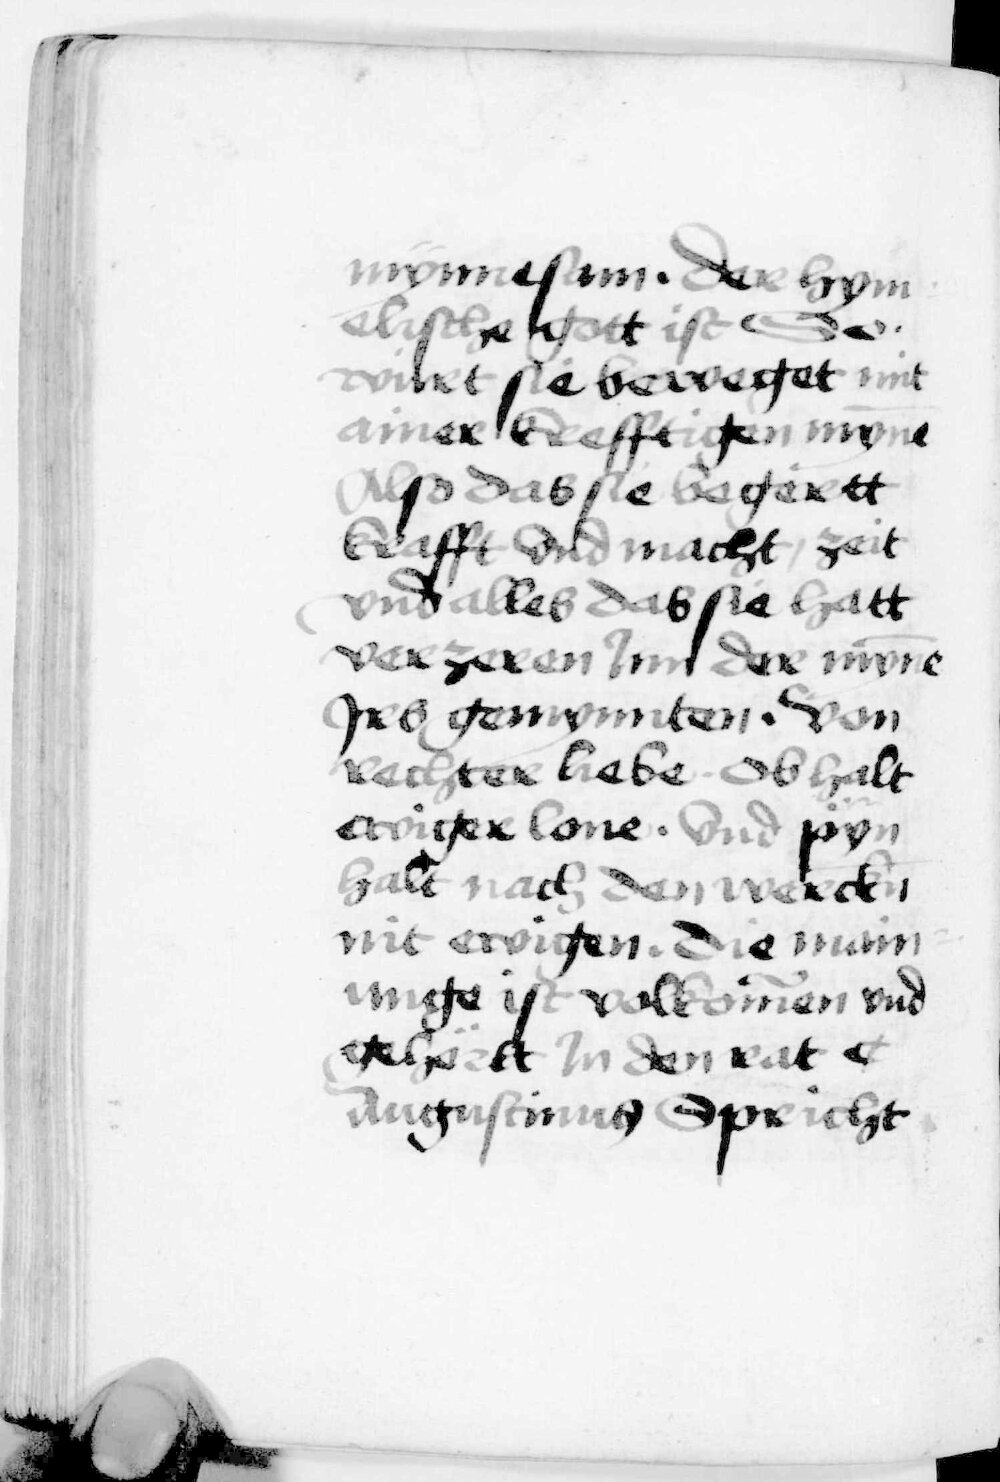 mỹnnesam. Der hym-
elische gott ist So.
wirt sie beweget mit
ainer krefftigen mȳne
Also das sie begërtt
krafft vnd macht, zeit
vnd alles das sie hatt
verzeren Jnn der mȳne
Jrs gemynnten. Von
rechter liebe. Ob halt
ewiger lone. Vnd pÿn
halt nach den werckn̄
nit ewigen. Die main-
unge ist volkom̄en vnd
gehörtt Jn den rat
Augustinus Spricht